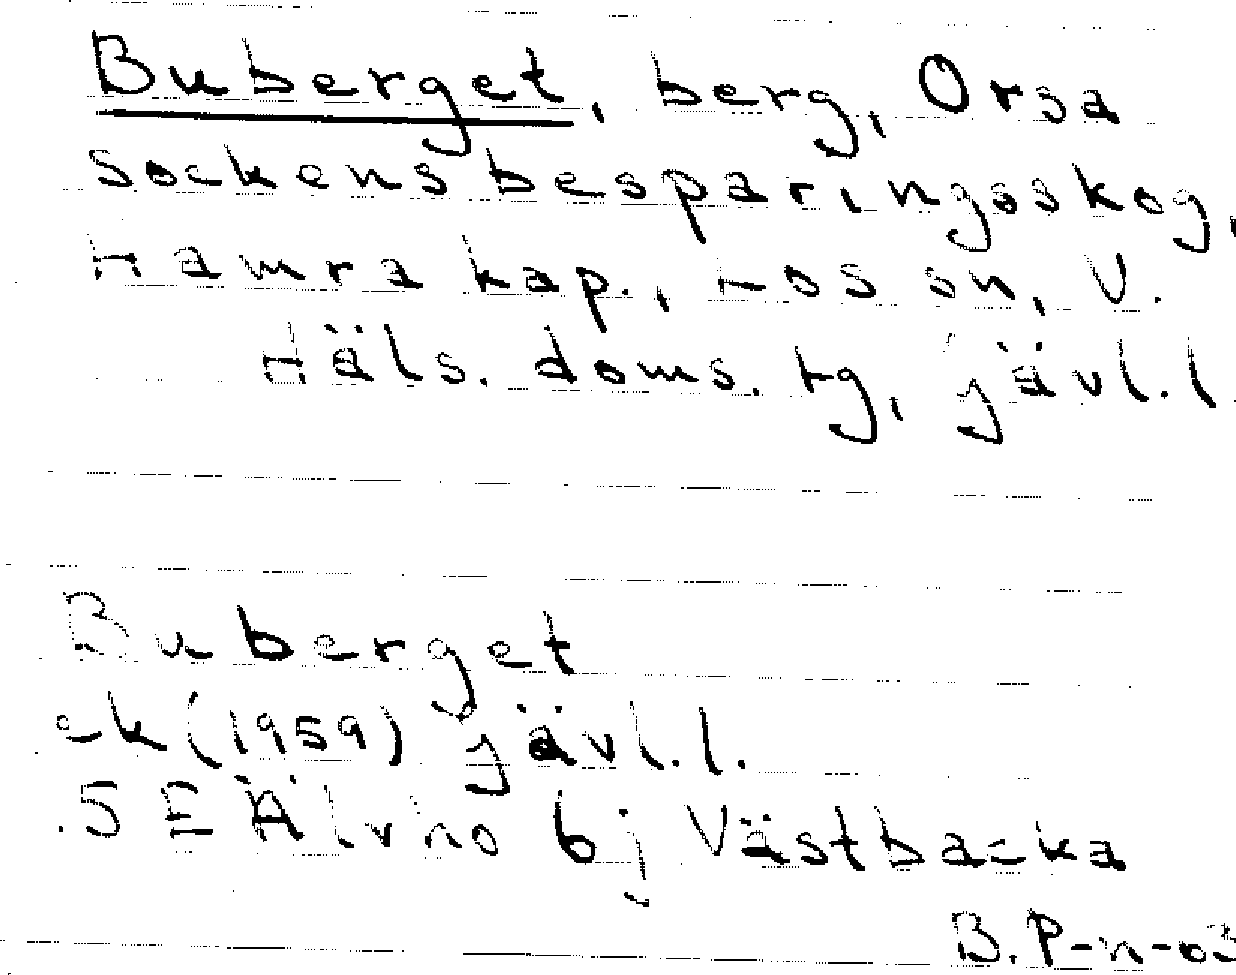 Buberget, berg, Orsa
sockens besparingsskog,
Hamra kap., Los sn, V.
Häls. doms. tg, Gävl. l.
Buberget
ek (1959) Gävl. l.
bj Västbacka
B. P-n-03